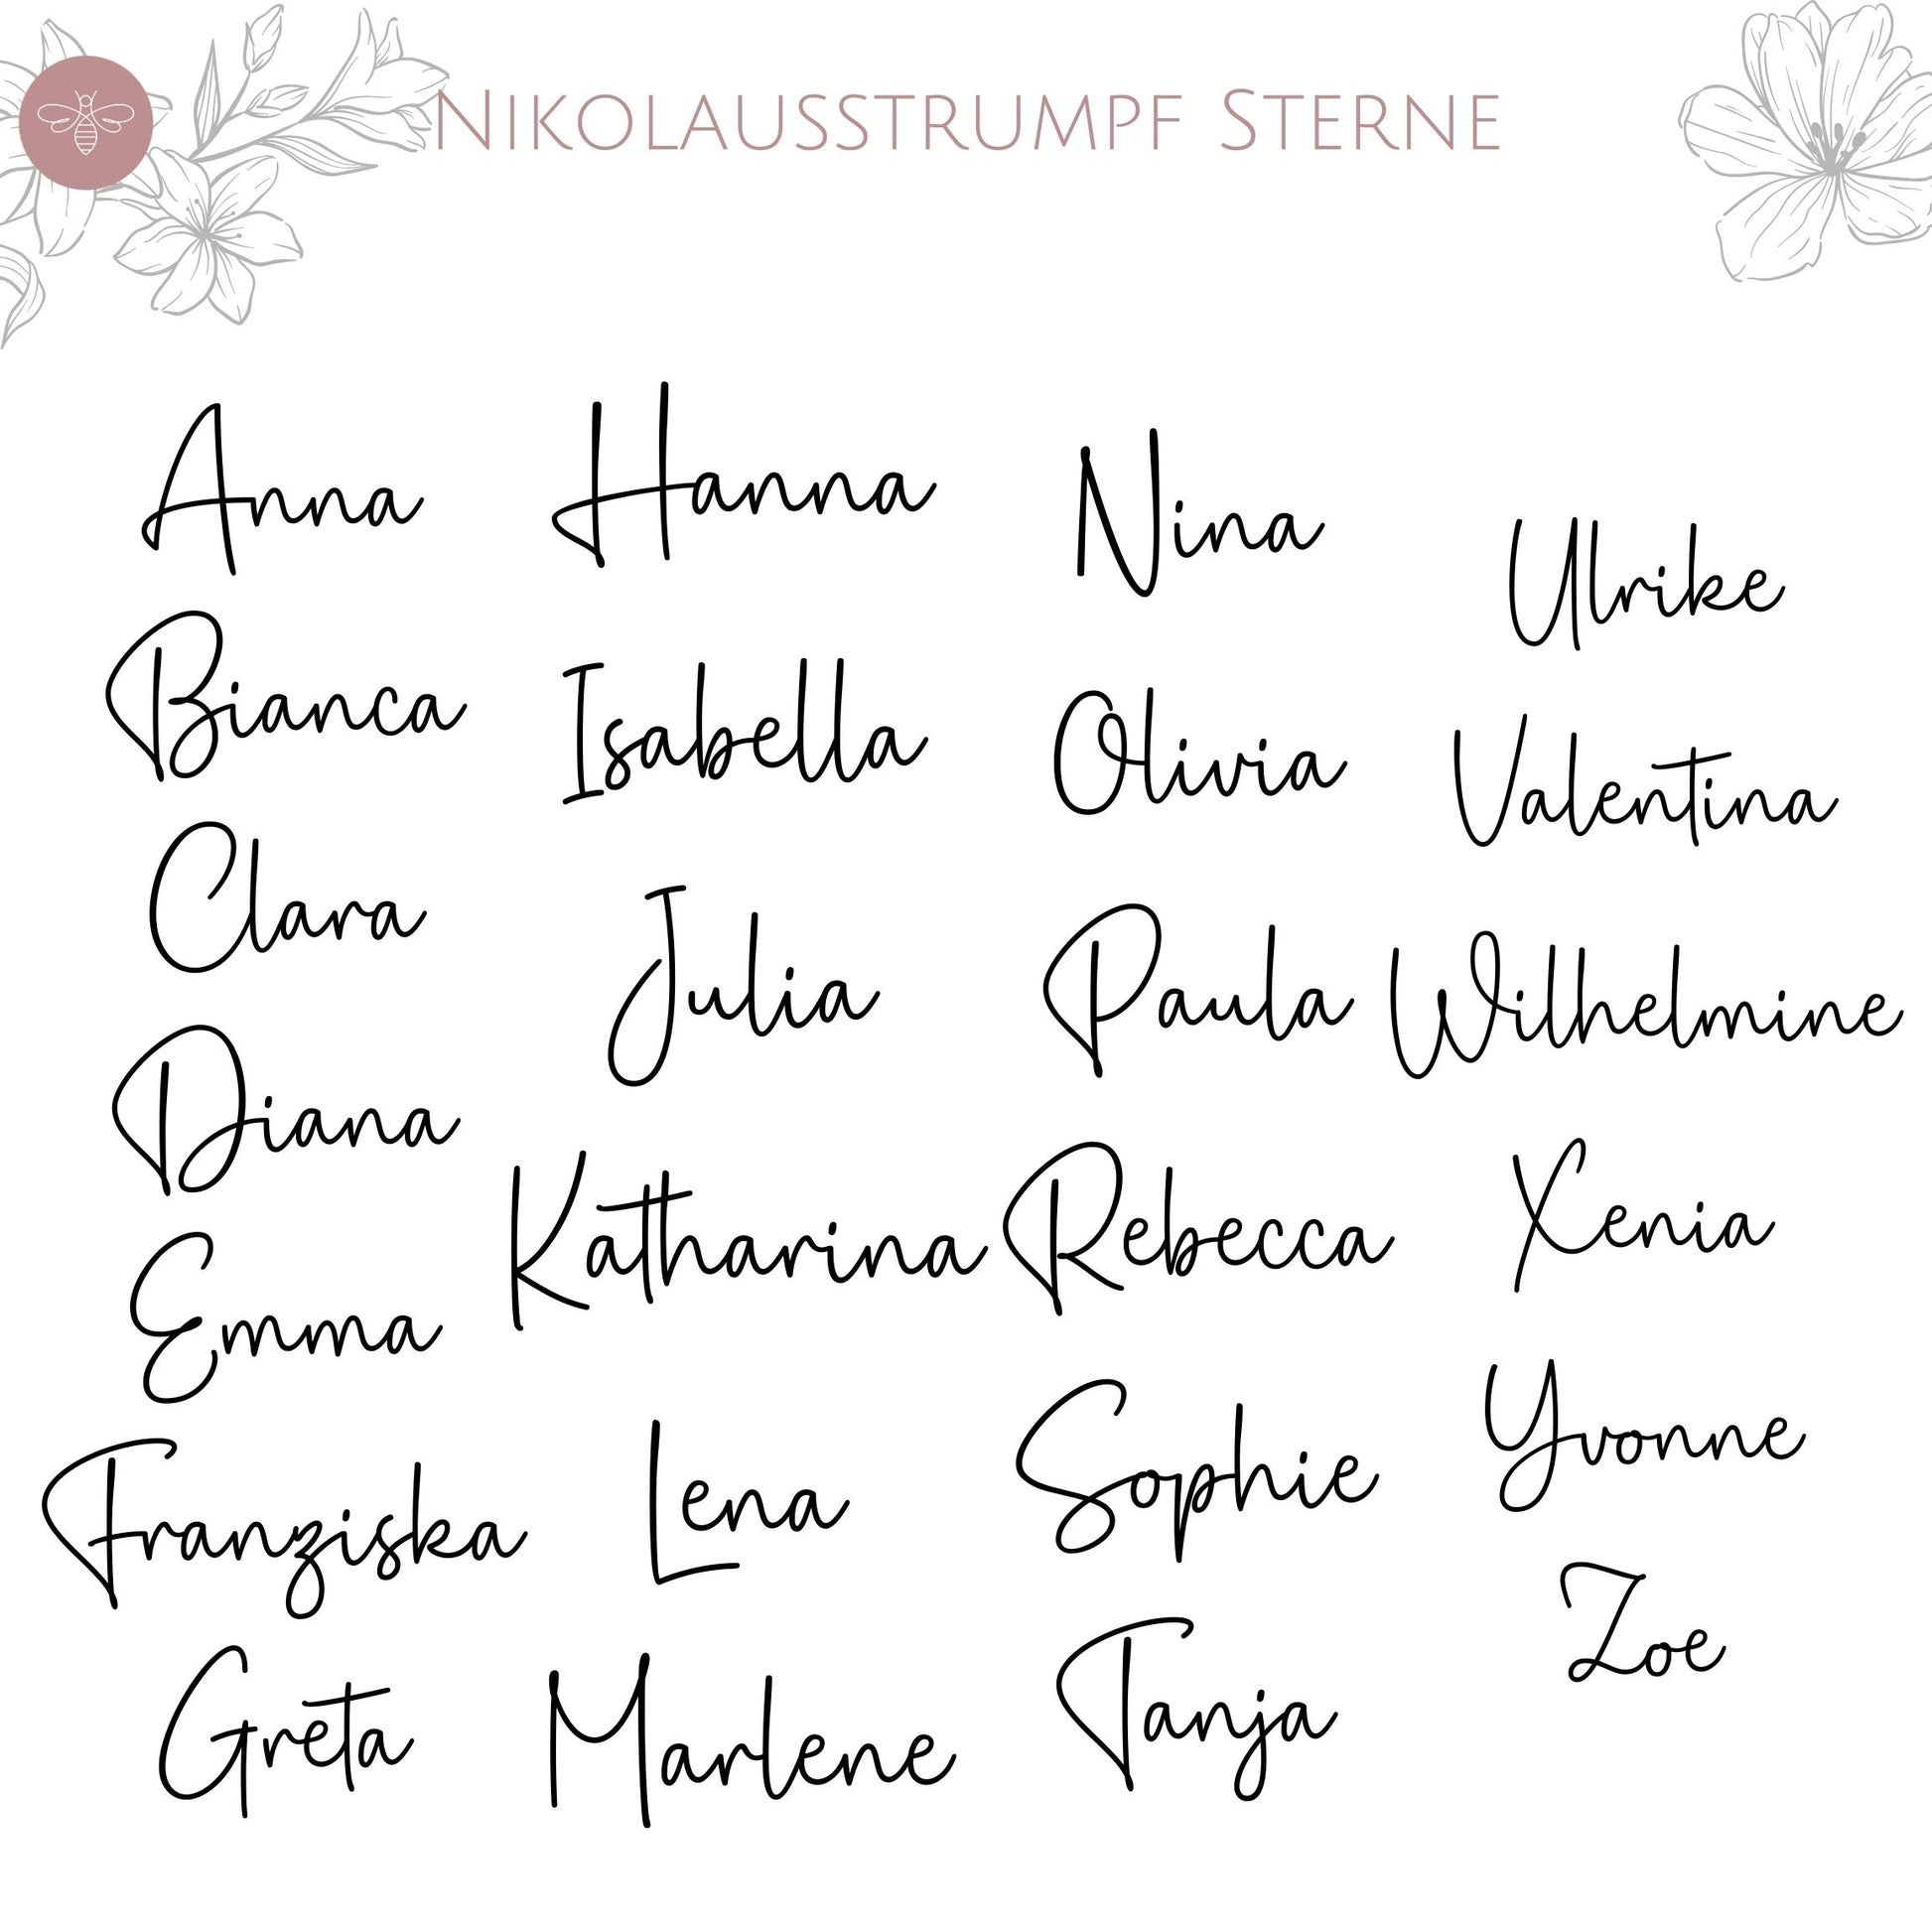 Nikolausstrumpf Sterne
Anna
Bianca
Clara
Diana
Emma
Franziska
Greta
Hanna
Isabella
Julia
Katharina
Lena
Marlene
Nina
Olivia
Paula
Rebecca
Sophie
Tanja
Ulrike
Valentina
Wilhelmine
Xenia
Yvonne
Zoe